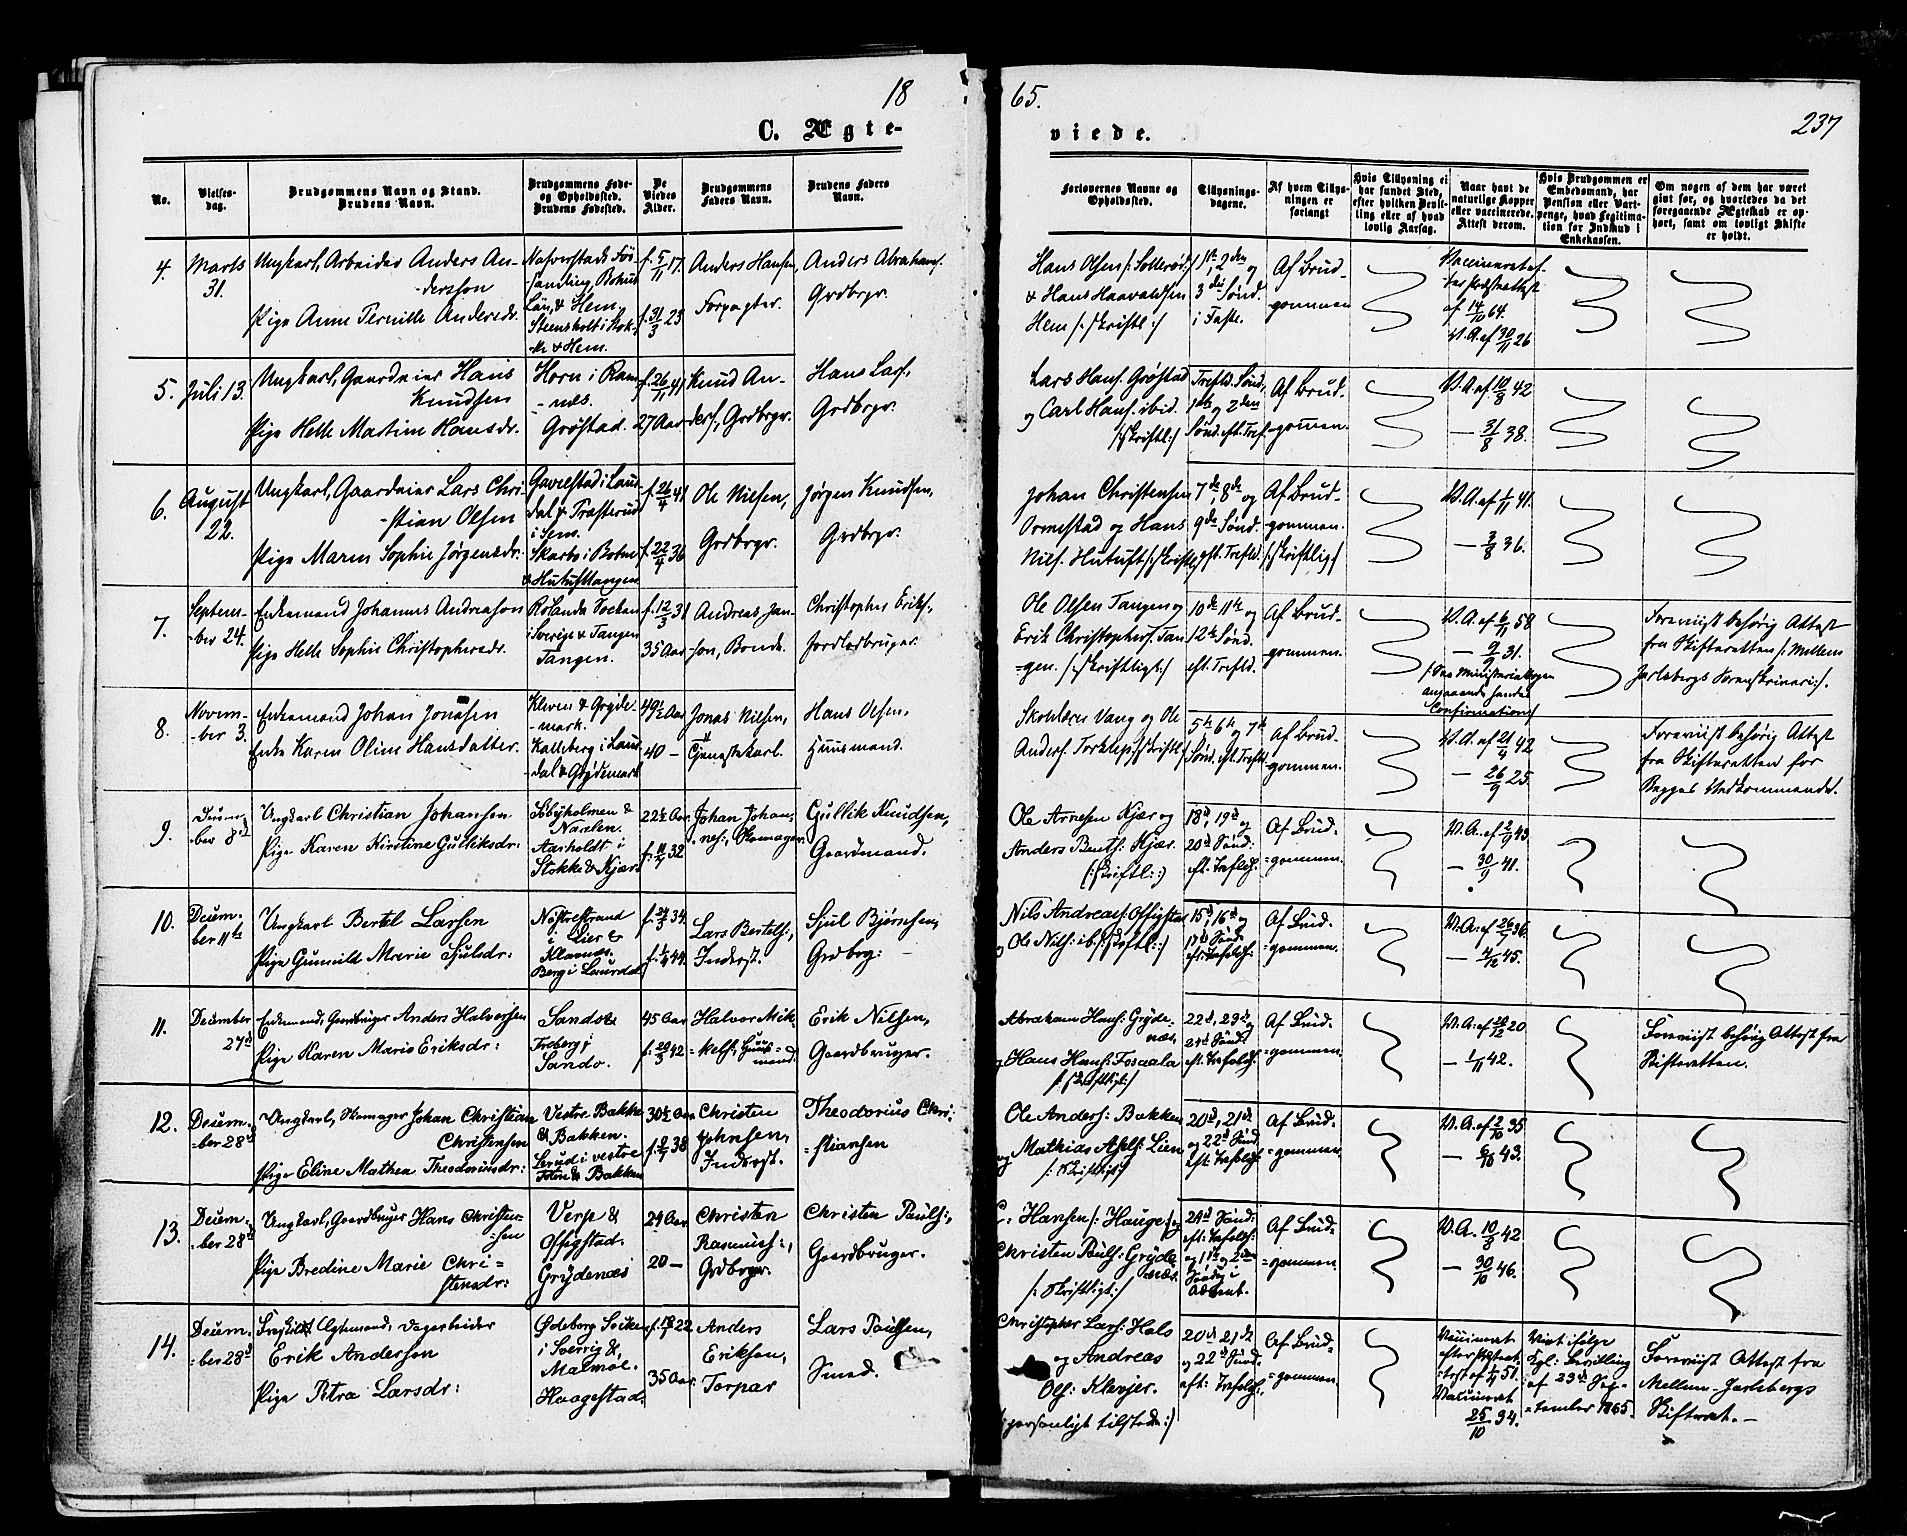 18
65.
237
C. Ægte-
viede.
No.
Vielses-
dag.
Brudgommens Navn og Stand.
Brudens Navn.
Brudgommens Føde-
og Opholdssted.
Brudens Fødested.
De
Viedes
Alder.
Brudgommens
Faders Navn.
Brudens Faders
Navn.
Forlovernes Navne og
Opholdssted.
Tillysnings-
dagene.
Af hvem Tillys-
ningen er
forlangt
Hvis Tillysning ei
har fundet Sted,
efter hvilken Bevil-
ling eller af hvad
lovlig Aarsag.
Naar havt de
naturlige Kopper
eller vaccinerede.
Attest derom.
Hvis Brudgommen er
Embedsmand, har
Pension eller Vart-
penge, hvad Legitima-
tion for Indskud i
Enkekassen.
Om nogen af dem har været
gift før, og hvorledes da det
foregaaende Ægteskab er op-
hørt, samt om lovligt Skifte
er holdt.
4.
Marts
31.
Ungkarl, Arbeider Anders An-
dersson
Pige Anne Pernille Andersdr.
Län, & Hem,
Steensholt i
& Hem.
f. 5/11 17.
f. 31/3 23
Anders Hansen,
Forpagter.
Anders Abrahams.
Grdbrgr.
Hans Olsen
& Hans Haavaldsen
Hem /:skriftl:/
1ste, 2den og
3die Sønd.
i Faste.
Af Brud-
gommen
af 14/10 64.
V. A. af 30/11 26
5.
Juli 13.
Ungkarl, Gaardeier Hans
Knudsen
Pige Helle Martine Hansdr.
Horn i Ram-
-næs.
Grøstad.
f. 26/11 41
27 Aar
Knud An-
ders., Grdbrgr.
Hans Lars.,
Grdbrgr.
Lars Hans. Grøstad
og Carl Hans. ibid.
/:skriftl:/
Trefld. Sønd.,
1ste og 2den
Sønd. eft. Tref.
Af Brud-
-gommen.
V. A. af 10/8 42
— 31/8 38.
6.
August
22.
Ungkarl, Gaardeier Lars Chri-
-stian Olsen
Pige Maren Sophie Jørgensdr.
Gavelstad i Laur-
dal & Træsterud
i Sem.
f. 26/4 41
f. 22/4 36
Ole Nilsen,
Grdbrgr.
Jørgen Knudsen,
Grdbrgr.
Johan Christensen
Ormestad og Hans
Nils. Hutuft /:skriftl:/
7de, 8de og
9de Sønd.
eft. Trefld.
Af Brud-
gommen.
/:skriftlig:/
V. A. af 1/11 41.
— 3/8 36.
7.
Septem-
-ber 24.
Enkemand Johannes Andreason
Pige Helle Sophie Christophersdr.
Rölanda Socken
i Sverige & Tangen
Tangen.
f. 12/3 31
35 Aar
Andreas Jan-
-son, Bonde.
Christopher Eriks.,
Jordlodbruger.
Ole Olsen Tangen og
Erik Christophers. Tan
=gen. /:skriftligt:/
10de 11te og
12te Sønd.
eft. Trefld.
Af Brud-
gommen.
V. A. af 6/11 58
— 9/9 31.
/:See Ministerialbogen
angaaende hendes
Confirmation/
Foreviist behørig Attest
fra Skifteretten /:Mellem
Jarlsbergs Sorenskriveri:/.
8.
Novem-
-ber 3.
Enkemand Johan Jonassen
Enke Karen Oline Hansdatter.
Kleven & Gryde-
-mark.
Kalleberg i Laur-
-dal & Grydemark
49½ Aar
40 —
Jonas Nilsen,
Tjenestekarl.
Hans Olsen,
Huusmand.
Skolelærer Vang og Ole
Anders. Torklep /:skriftl:/
5te 6te og 7de
Sønd. eft. Trefld.
Af Brud-
gommen.
V. A. af 21/4 42
— 26/9 25.
Foreviist behørig Attest
fra Skifteretten for
Begges Vedkommende.
9.
Decem-
-ber 8de
Ungkarl Christian Johansen
Pige Karen Kirstine Gulliksdr.
Sbyholmen &
Aasholdt i
Stokke & Kjær
22½ Aar
f. 11/7 32
Johan Johan-
nes., Skomager.
Gullik Knudsen,
Gaardmand.
Ole Arnesen Kjær og
Anders Bents: Kjær.
(:skriftl:)
18de, 19de og
20de Sønd:
eft. Trefoldh:
Af Brud-
=gommen.
V. A. af 2/9 43
— 30/9 41.
10.
Decem-
ber 11te
Ungkarl Bertel Larsen
Pige Gunnild Marie Sjulsdr:
Nøstrestrand
i Lier &
Klavnæs.
Berg i Laurdal.
f. 24/3 34
f. 1/4 44
Lars Bertels:,
Inderst.
Sjul Bjørnsen,
Grdbrg:
Nils Andreas: Offigstad
og Ole Nils: ib. /:skriftl:/
15de, 16de og
17de Sønd.
eft. Trefoldh:
Af Brud-
=gommen.
V. A. af 26/7 36.
— 4/12 45.
11.
December
27de
Enkemand, Gaardbruger Anders Halvorsen
Pige Karen Marie Eriksdr:
Sandsø
Freberg i
Sandsø.
45 Aar
f. 20/3 42
Halvor Mik-
=kels:, Huus=
mand.
Erik Nilsen,
Gaardbruger.
Abraham Hans: Gryde-
næs.
og Hans Hans: Fossaala
/:skriftligt:/
22de, 23de og
24de Sønd:
eft. Trefoldh:
Af Brud-
=gommen.
V. A. af 20/12 20
— 1/11 42.
Foreviist behørig Attest fra
Skifteretten.
12.
Decem-
=ber 28de
Ungkarl, Skomager Johan Christian
Christensen
Pige Eline Mathea Theodoriusdr:
Vestre Bakke
& Bakken.
Lerud i vestre
Toten & Bakken
30½ Aar
f. 9/7 38
Christen
Johnsen,
Inderst.
Theodorius Chri-
=stiansen
Ole Anders: Bakken
og Mathias Axels: Lien
/:skriftligt:/
20de, 21de
og 22de Sønd.
eft. Trefoldh:
Af Brud-
=gommen.
V. A. af 2/10 35
— 6/10 43.
13.
Decem-
=ber 28de
Ungkarl, Gaardbruger Hans Christen=
=sen
Pige Bredine Marie Chri=
stensdr:
Verp &
Offigstad.
Grydenæs
24 Aar
20 —
Christen
Rasmus:,
Grdbrgr.
Christen Pauls:,
Gaardbruger.
Hansen /:Hauge:/ og
Christen Pauls: Gryde
næs.
/:skriftligt:/
24de Sønd:
eft: Trefoldh:
og 1ste og 2den
Søndag i
Advent.
Af Brud-
=gommen.
V. A. 10/8 42
— 30/10 46.
14.
Decem-
=ber 28de
Fraskilt Ægtemand, Dagarbeider
Erik Anderson
Pige Petra Larsdr:
Ødeborg Sokn
i Sverrig &
Malmøe.
Haagestad.
35 Aar.
Anders
Erikson,
Torpar
Lars Paulsen,
Smed.
Christopher Lars: Hals
og Andreas
Ols: Klavjer.
(:personligt tilstede:)
20de 21de
og 22de Sønd.
eft: Trefoldh:,
Af Brud-
=gommen.
Vaccineret
efter Præsteat-
=test af 1/4 51.
Vaccineret
25/10 34.
Viet ifølge
Kgl: Bevilling
af 23de Sep-
=tember 1865.
Foreviist Attest fra
Mellem-Jarlsbergs
Skifteret. —